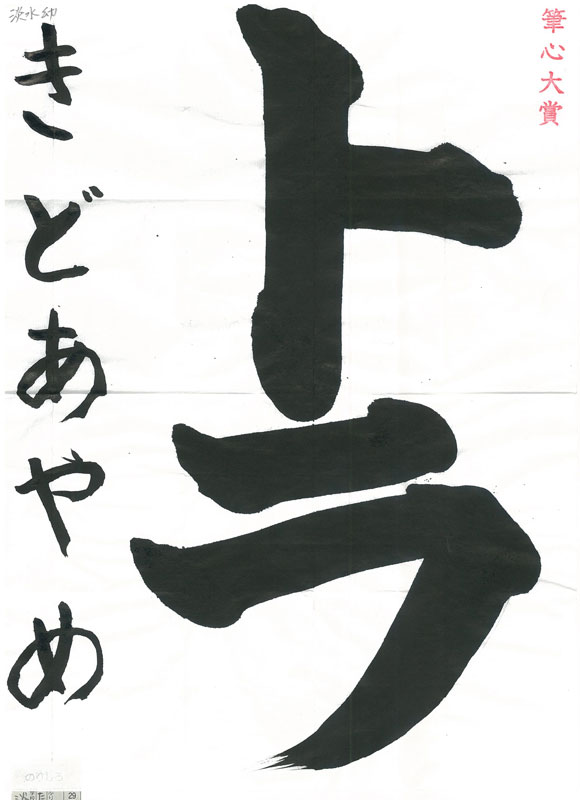 筆心大賞
トラ
淡水幼
きどあやめ
29